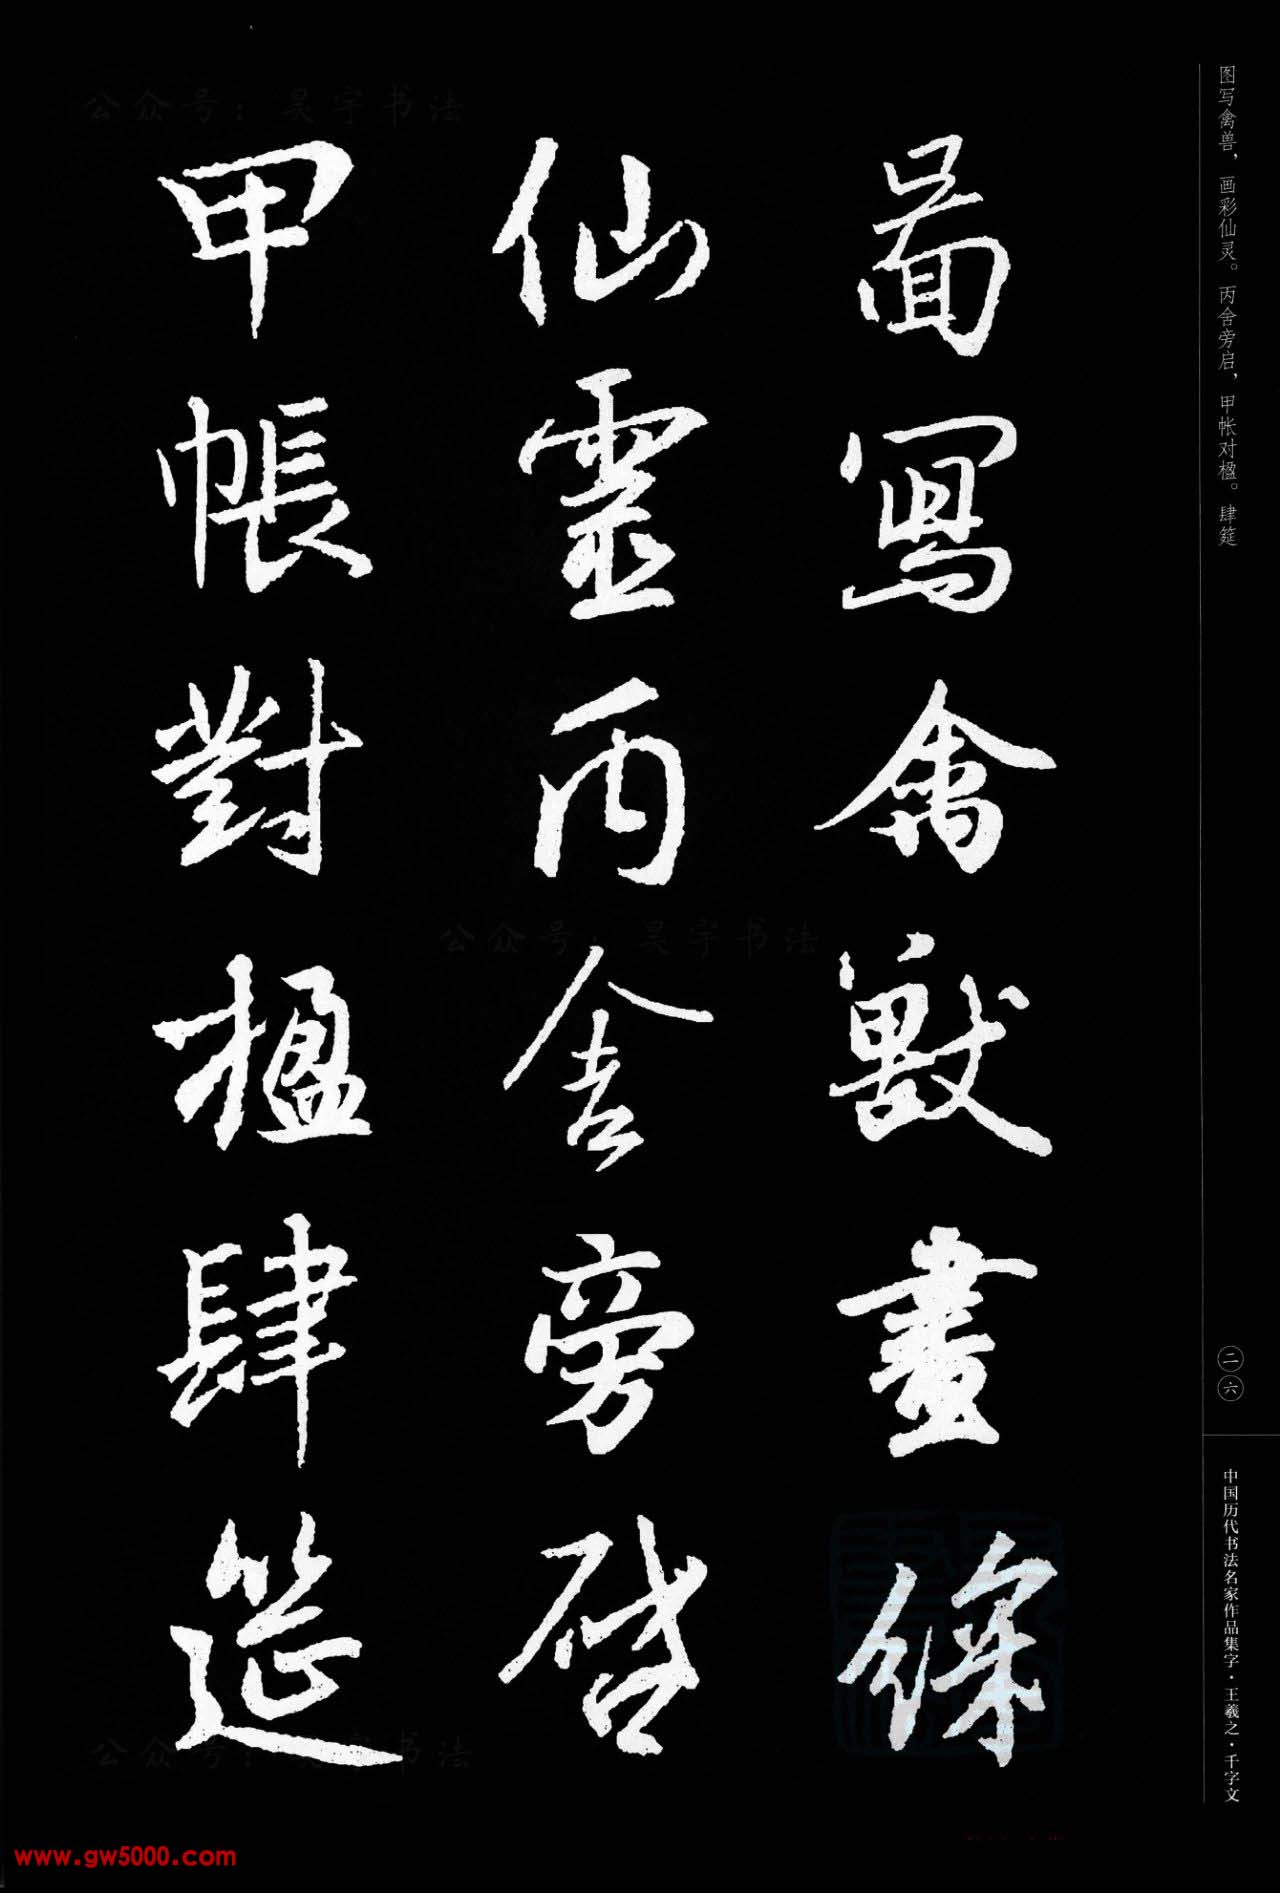 圖寫禽獸畫綵
仙靈丙舍旁啓
甲帳對楹肆筵
图写禽兽，画彩仙灵。丙舍旁启，甲帐对楹。肆筵
二六
中国历代书法名家作品集字·王羲之·千字文
公众号：昊宇书法
公众号：昊宇书法
公众号：昊宇书法
www.gw5000.com